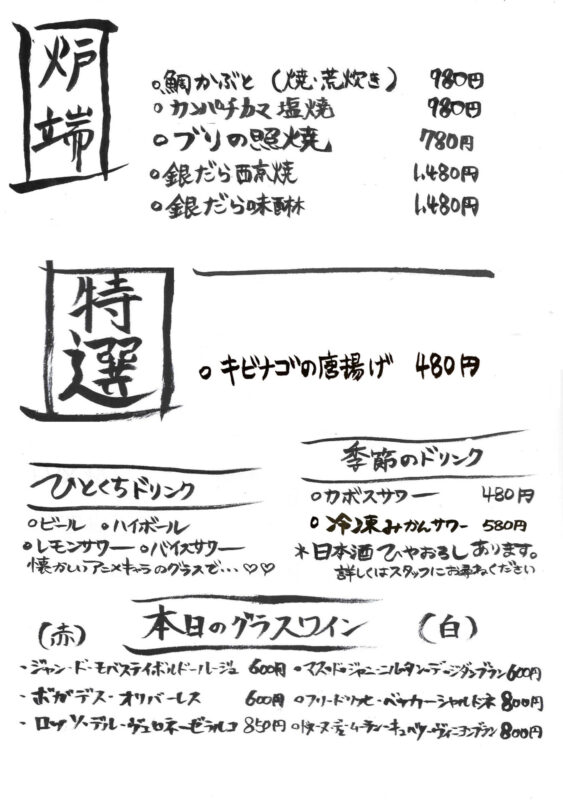 炉端
○鯛かぶと（焼・荒炊き） 980円
○カンパチカマ塩焼 980円
○ブリの照焼 780円
○銀だら西京焼 1,480円
○銀だら味醂 1,480円
特選
○キビナゴの唐揚げ 480円
ひとくちドリンク
○ビール ○ハイボール
○レモンサワー ○バイスサワー
懐かしいアニメキャラのグラスで…♡♡
季節のドリンク
○カボスサワー 480円
○冷凍みかんサワー 580円
＊日本酒ひやおろしあります。
詳しくはスタッフにお尋ねください
本日のグラスワイン
（赤）
・ジャン・ド・モバスティボルドールージュ 600円
・ボガデス・オリバーレス 600円
・ロッソ・デル・ヴェロネーゼ 850円
（白）
600円
○フリードリッヒ・ベッカーシャルドネ 800円
800円